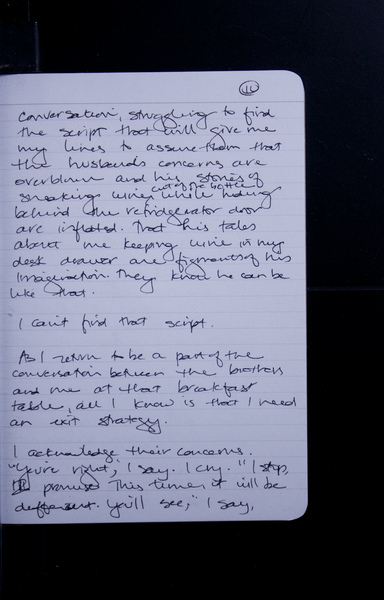 11
conversation, struggling to find
the script that will give me
my lines to assure them that
the husbands concerns are
overblown and his stories of
sneaking wine out of the bottle while hiding
behind the refridgerator door
are inflated. That his tales
about me keeping wine in my
desk drawer are figments of his
imagination. They know he can be
like that.
I can't find that script.
As I return to be a part of the
conversation between the brothers
and me at that breakfast
table, all I know is that I need
an exit strategy.
I acknowledge their concerns.
"You're right," I say. I cry. "I stop,
promise This time, it will be
different. You'll see," I say,